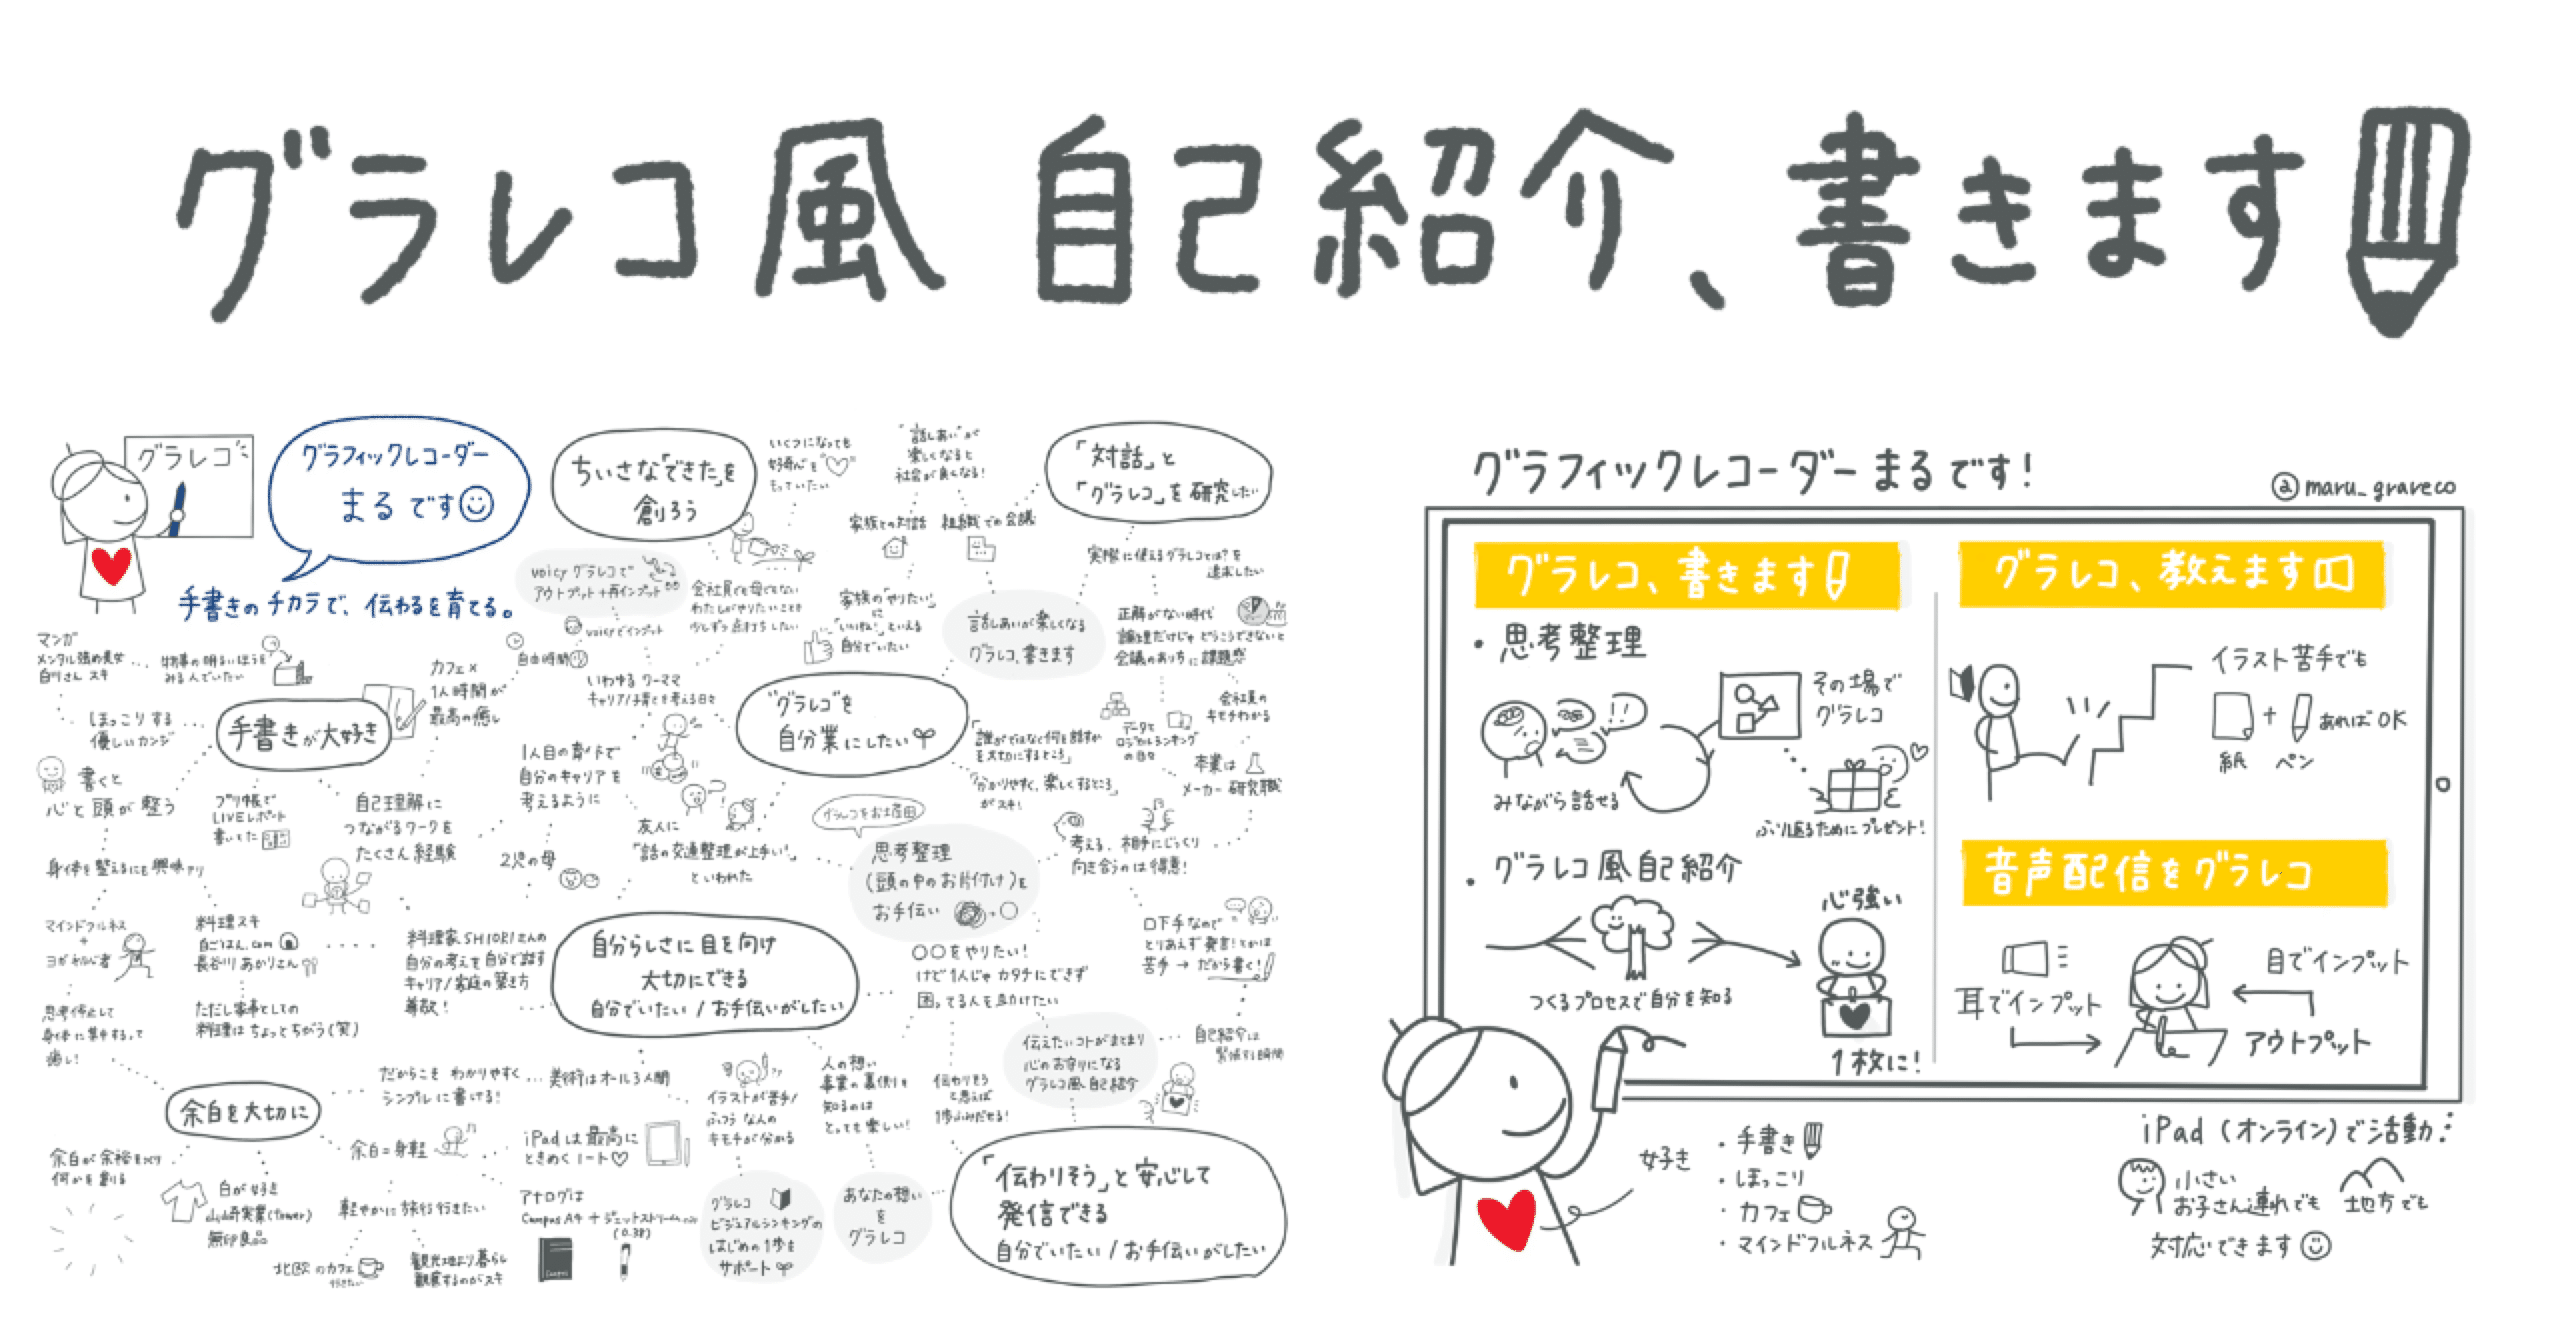 グラレコ風 自己紹介、書きます
グラレコ
グラフィックレコーダー
まるです
手書きのチカラで、伝わるを育てる。
ちいさな「できた」を
創ろう
いくつになっても
もっていたい
"話しあい"が
楽しくなると
社会が良くなる！
「対話」と
「グラレコ」を研究したい
家族との対話
組織での会議
実際に使えるグラレコとは？を
追求したい
voicyグラレコで
アウトプット+再インプット
voicyでインプット
自由時間
会社員でも母でもない
わたしがやりたいことを
少しずつ点打ちしたい
家族の「やりたい」
に
「いいね！」といえる
自分でいたい
話しあいが楽しくなる
グラレコ、書きます
正解がない時代
論理だけじゃどうこうできないと
会議のあり方に課題感
マンガ
メンタル強め美女
白川さん スキ
物事の明るいほうを
みる人でいたい
カフェ×
1人時間が
最高の癒し
いわゆるワーママ
キャリア/子育てを考える日々
ほっこりする
優しいカンジ
手書きが大好き
"グラレコ"を
自分業にしたい
「誰がではなく何を話すか
を大切にするところ」
「分かりやすく、楽しくするところ」
がスキ！
データで
ロジカルシンキング
の日々
会社員の
キモチわかる
本業は
メーカー研究職
書くと
心と頭が整う
プリ帳で
LIVEレポート
書いてた
自己理解に
つながるワークを
たくさん経験
1人目の育休で
自分のキャリアを
考えるように
2児の母
友人に
「話の交通整理が上手い」
といわれた
グラレコをお土産に
思考整理
(頭の中のお片付け)を
お手伝い
考える、相手にじっくり
向き合うのは得意！
身体を整えるにも興味アリ
マインドフルネス
+
ヨガ初心者
料理スキ
白ごはん.com
長谷川あかりさん
料理家SHIORIさんの
自分の考えを自分で話す
キャリア/家庭の築き方
尊敬！
自分らしさに目を向け
大切にできる
自分でいたい/お手伝いがしたい
〇〇をやりたい！
けど1人じゃカタチにできず
困ってる人を助けたい
口下手なので
とりあえず発言！とかは
苦手→だから書く！
思考停止して
身体に集中するって
癒し！
ただし家事としての
料理はちょっとちがう(笑)
伝えたいコトがまとまり
心のお守りになる
グラレコ風、自己紹介
自己紹介は
緊張する時間
余白を大切に
だからこそ わかりやすく
シンプルに書ける！
美術はオール3人間
イラストが苦手/
ふつうな人の
キモチが分かる
人の想い
事業の裏側を
知るのは
とっても楽しい！
伝わりそう
と思えば
1歩ふみだせる！
余白が余裕をつくり
何かを創る
余白=身軽
iPadは最高に
ときめくノート♡
白が好き
山崎実業(tower)
無印良品
軽やかに旅行行きたい
アナログは
Campus A4 + ジェットストリーム
(0.38)
北欧のカフェ
行きたい
観光地より暮らし
観察するのがスキ
グラレコ
ビジュアルシンキングの
はじめの1歩を
サポート
あなたの想い
を
グラレコ
「伝わりそう」と安心して
発信できる
自分でいたい/お手伝いがしたい
グラフィックレコーダーまるです！
@maru_grareco
グラレコ、書きます
・思考整理
その場で
グラレコ
みながら話せる
ふり返るためにプレゼント！
・グラレコ風自己紹介
つくるプロセスで自分を知る
心強い
1枚に！
グラレコ、教えます
イラスト苦手でも
紙 + ペン あればOK
音声配信をグラレコ
耳でインプット
目でインプット
アウトプット
好き
・手書き
・ほっこり
・カフェ
・マインドフルネス
iPad(オンライン)で活動
小さい
お子さん連れでも
地方でも
対応できます